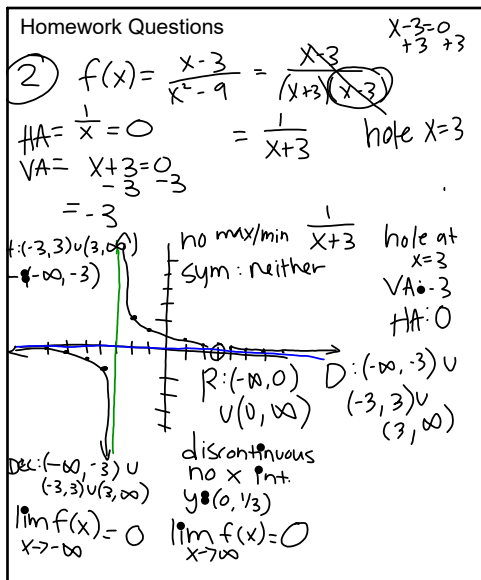 Homework Questions
x-3=0
+3 +3
2 f(x)= x-3 / x²-9 = x-3 / (x+3)(x-3)
HA= 1/x = 0
= 1/x+3 hole x=3
VA= x+3=0
-3 -3
= -3
:(-3,3)∪(3,∞)
(-∞,-3)
no max/min 1/x+3
sym: neither
hole at
x=3
VA: -3
HA: 0
R:(-∞,0)
∪(0,∞)
D:(-∞,-3)∪
(-3,3)∪
(3,∞)
Dec:(-∞,-3)∪
(-3,3)∪(3,∞)
discontinuous
no x int.
y:(0,1/3)
lim f(x)=0
x->-∞
lim f(x)=0
x->∞